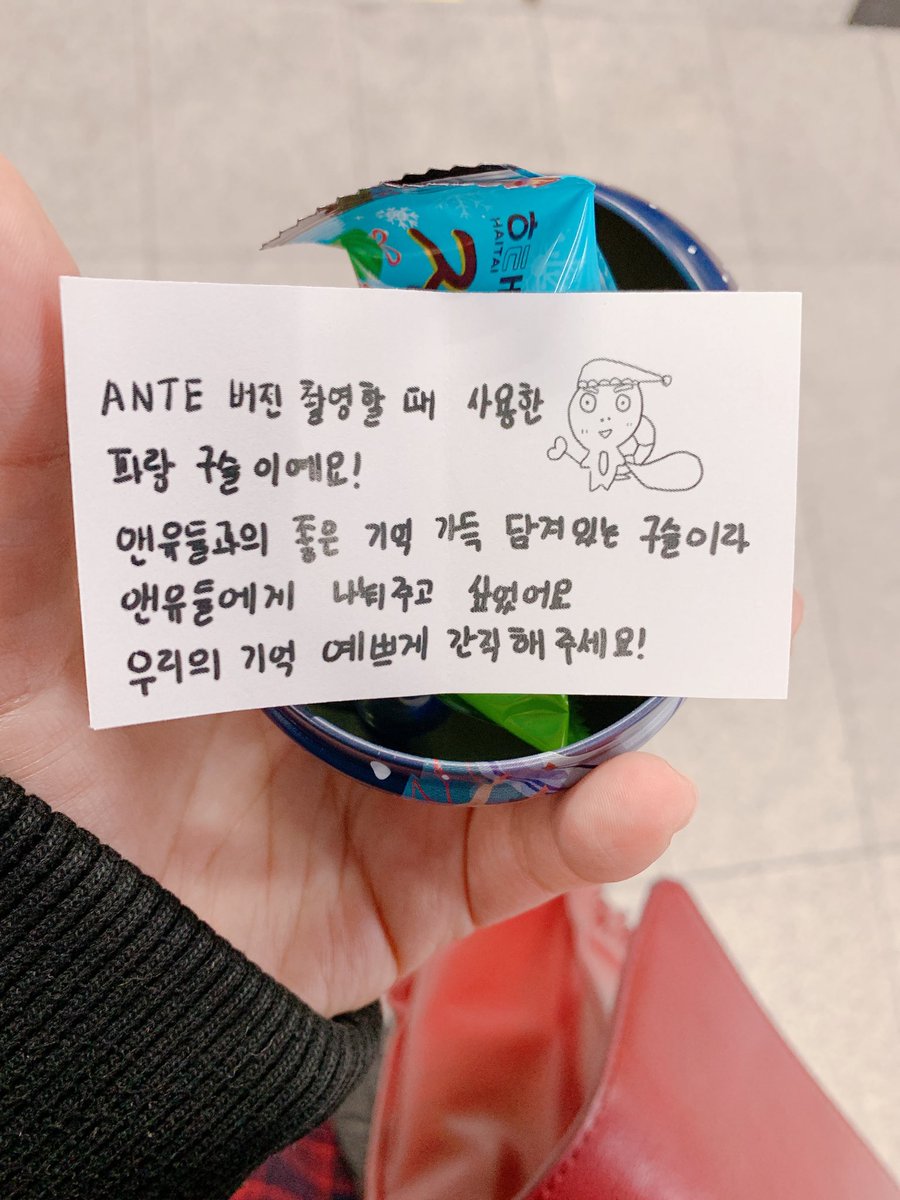 하늘ㅂ
HAITAI
ANTE 버전 촬영할 때 사용한
파랑 구슬이에요!
앤유들과의 좋은 기억 가득 담겨있는 구슬이라
앤유들에게 나눠주고 싶었어요
우리의 기억 예쁘게 간직해주세요!